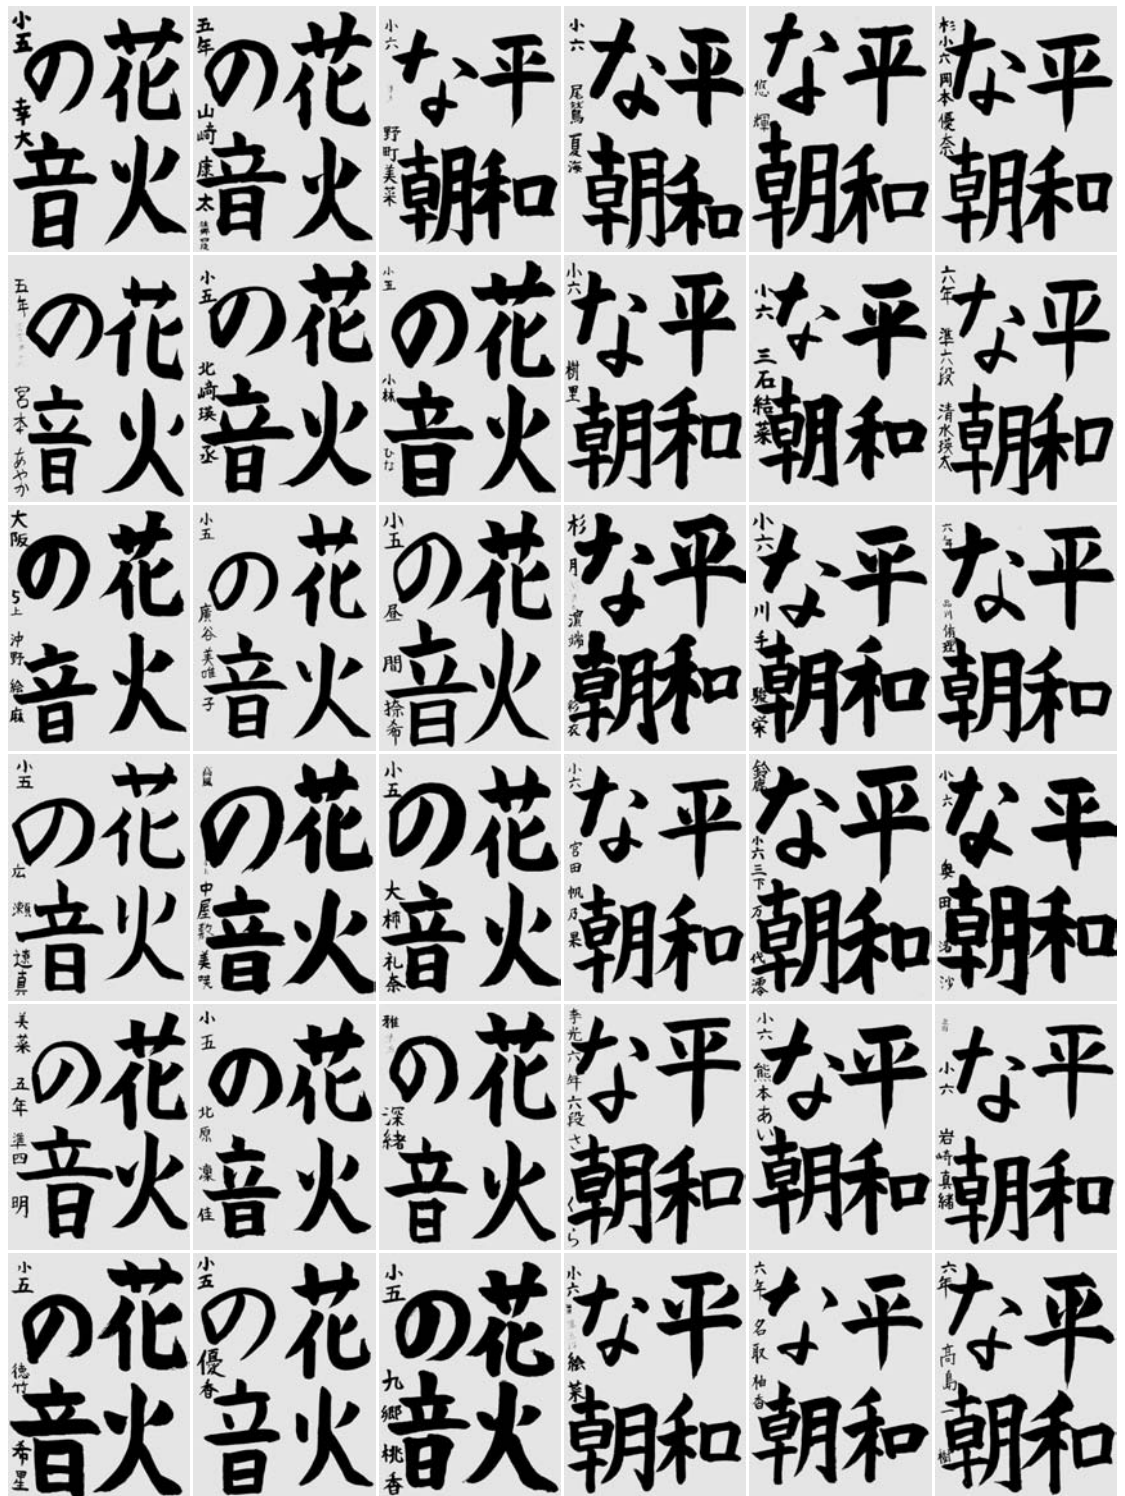 花火
の音
小五 幸大
花火
の音
五年 山崎康太
平和
な朝
小六 野町美菜
平和
な朝
小六 尾鷲夏海
平和
な朝
悠輝
平和
な朝
杉小六 岡本優奈
花火
の音
五年 宮本あやか
花火
の音
小五 北崎瑛丞
花火
の音
小五 小林ひな
平和
な朝
小六 樹里
平和
な朝
小六 三石結菜
平和
な朝
六年 準六段 清水瑛太
花火
の音
大阪 5上 沖野絵麻
花火
の音
小五 廣谷美唯子
花火
の音
小五 昼間捺希
平和
な朝
杉月 濵端彩衣
平和
な朝
小六 川手駿栄
平和
な朝
六年 品川侑理
花火
の音
小五 広瀬遼真
花火
の音
高風 中屋敷美咲
花火
の音
小五 大柿礼奈
平和
な朝
小六 宮田帆乃果
平和
な朝
鈴鹿 小六三下 万代澪
平和
な朝
小六 奥田 沙
花火
の音
美菜 五年 準四 明
花火
の音
小五 北原凜佳
花火
の音
雅 深緒
平和
な朝
李光六年六段さくら
平和
な朝
小六 熊本あい
平和
な朝
小六 岩崎真緒
花火
の音
小五 徳竹希星
花火
の音
小五 優香
花火
の音
小五 九郷桃香
平和
な朝
小六 絵菜
平和
な朝
六年 名取柚香
平和
な朝
六年 高島一樹